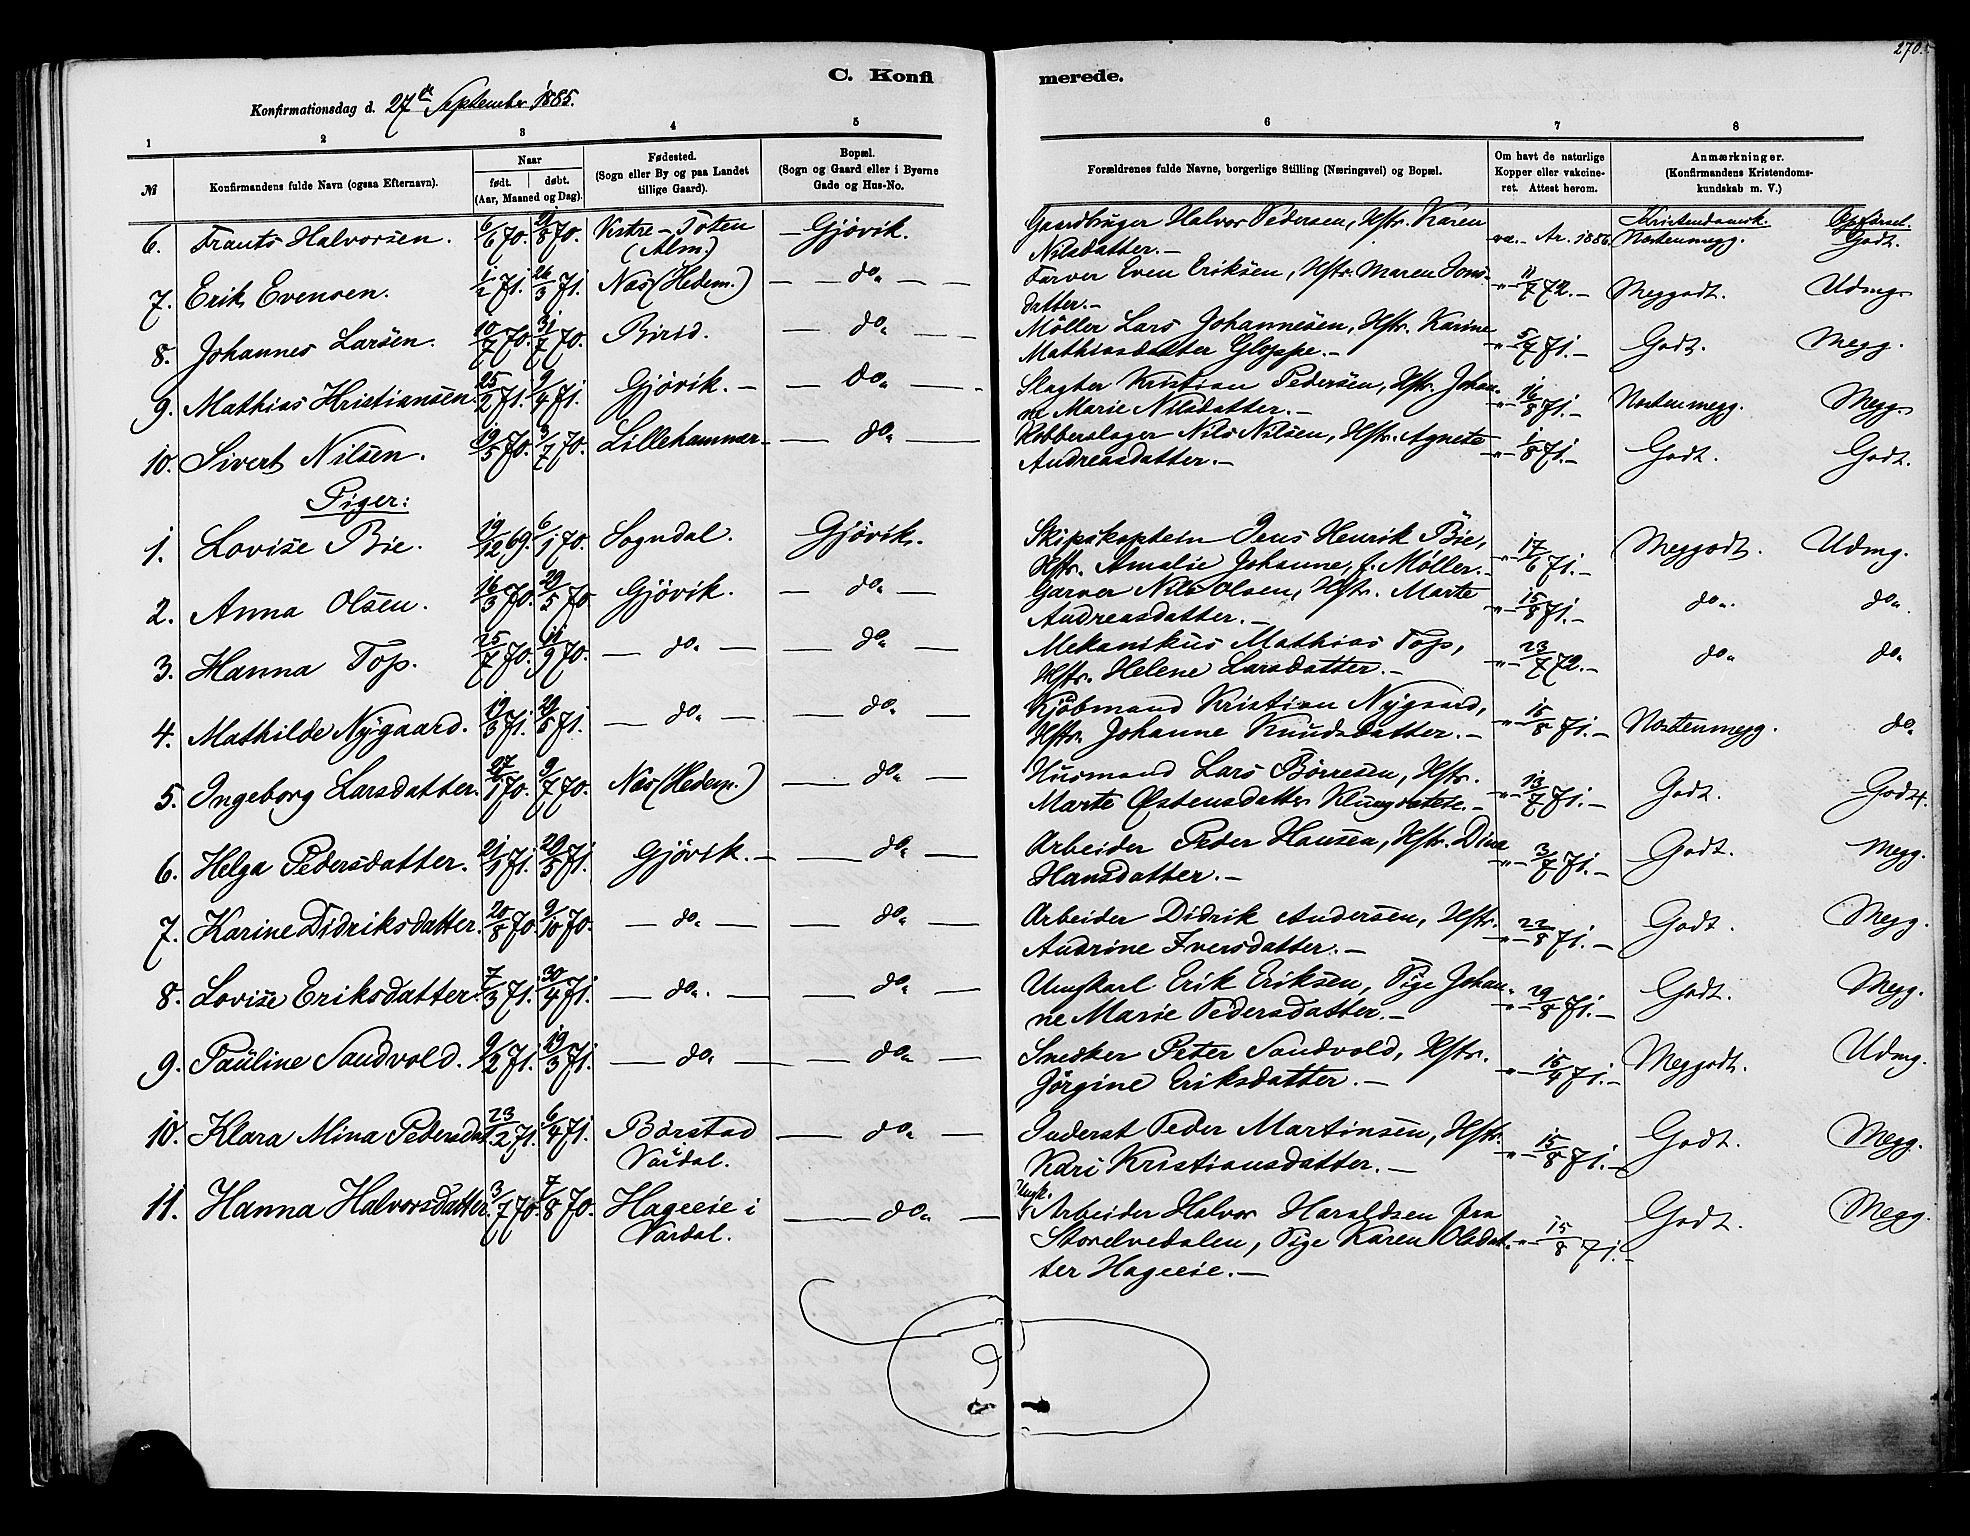 270.
C. Konfi
merede.
Konfirmationsdag d. 27de September 1885.
1 2 3 4 5 6 7 8
№ Konfirmandens fulde Navn (ogsaa Efternavn). Naar født. døbt. (Aar, Maaned og Dag). Fødested. (Sogn eller By og paa Landet tillige Gaard). Bopæl. (Sogn og Gaard eller i Byerne Gade og Hus-No. Forældrenes fulde Navne, borgerlige Stilling (Næringsvei) og Bopæl. Om havt de naturlige Kopper eller vakcineret. Attest herom. Anmærkninger. (Konfirmandens Kristendomskundskab m. V.)
Kristendomsk. Opførsel.
6. Frants Halvorsen. 6/6 70. 21/8 70. Vestre-Toten (Alm.) — Gjövik. Gaardbruger Halvor Pedersen, Hstr. Karen
Nilsdatter.— Næstenmegg. Godt.
7. Erik Evensen. 1/2 71. 26/3 71. Næs (Hedem.) — do. — Farver Even Eriksen, Hstr. Maren Jens-
datter.— " 11/7 72.— Meggodt. Udmg.
8. Johannes Larsen. 10/7 70. 31/7 70. Birid. — do. — Möller Lars Johannesen, Hstr. Karine
Mathiasdatter Gloppe.— " 5/7 71.— Godt. Megg.
9. Mathias Kristiansen. 25/2 71. 9/4 71. Gjövik.— — do. — Slagter Kristian Pedersen, Hstr. Johan-
ne Marie Nilsdatter.— " 16/8 71.— Næstenmegg. Megg.
10. Sivert Nilsen. 19/5 70. 3/7 70. Lillehammer — do. — Kobberslager Nils Nilsen, Hstr. Agnete
Andreasdatter.— " 1/8 71.— Godt. Godt.
Piger:
1. Lovise Bie. 19/12 69. 6/1 70. Sogndal. Gjövik. Skipskaptein Jens Henrik Bie,
Hstr. Amalie Johanne, f. Möller.— " 17/6 71.— Meggodt. Udmg.
2. Anna Olsen. 16/3 70. 29/5 70 Gjövik. — do. — Garver Nils Olsen, Hstr. Marte
Andreasdatter.— " 15/8 71.— do. do.
3. Hanna Top. 25/7 70. 11/9 70. — do. — — do. — Mekanikus Mathias Top,
Hstr. Helene Larsdatter.— " 23/7 72.— do. do.
4. Mathilde Nygaard. 19/3 71. 29/5 71. — do. — — do. — Kjöbmand Kristian Nygaard,
Hstr. Johanne Knudsdatter.— " 15/8 71.— Næstenmegg. do.
5. Ingeborg Larsdatter. 27/1 70. 9/7 70. Næs (Hedem.) — do. — Husmand Lars Börresen, Hstr.
Marte Østensdatter — " 13/7 71.— Godt. Godt.
6. Helga Pedersdatter. 21/3 71. 29/5 71. Gjövik.— — do. — Arbeider Peder Hansen, Hstr. Dina
Hansdatter.— " 3/7 71.— Godt. Megg.
7. Karine Didriksdatter. 20/8 70. 9/10 70. — do. — — do. — Arbeider Didrik Andersen, Hstr.
Andrine Iversdatter.— " 22/8 71.— Godt. Megg.
8. Lovise Eriksdatter. 7/3 71. 30/4 71. — do. — — do. — Ungkarl Erik Eriksen, Pige Johan-
ne Marie Pedersdatter.— " 29/8 71.— Godt. Megg.
9. Pauline Sandvold. 9/2 71. 19/3 71. — do. — — do. — Snedker Peter Sandvold, Hstr.
Jörgine Eriksdatter.— " 15/4 71.— Meggodt. Udmg.
10. Klara Mina Pedersdat. 23/2 71. 6/4 71. Børstad Vardal. — do. — Inderst Peder Martinsen, Hstr.
Kari Kristiansdatter.— " 15/8 71.— Godt. Megg.
11. Hanna Halvorsdatter. 3/7 70. 7/8 70. Hageeie i Vardal. — do. — Ungk. Arbeider Halvor Haraldsen fra
Storelvedalen, Pige Karen Olsdat-
ter Hageeie.— " 15/8 71.— Godt. Megg.